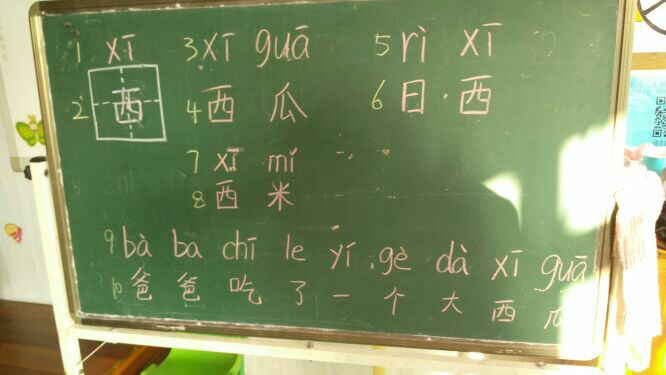 1 xī 3 xī guā 5 rì xī
2 西 4 西 瓜 6 日 西
7 xī mǐ
8 西 米
9 bà ba chī le yí gè dà xī guā
10 爸 爸 吃 了 一 个 大 西 瓜